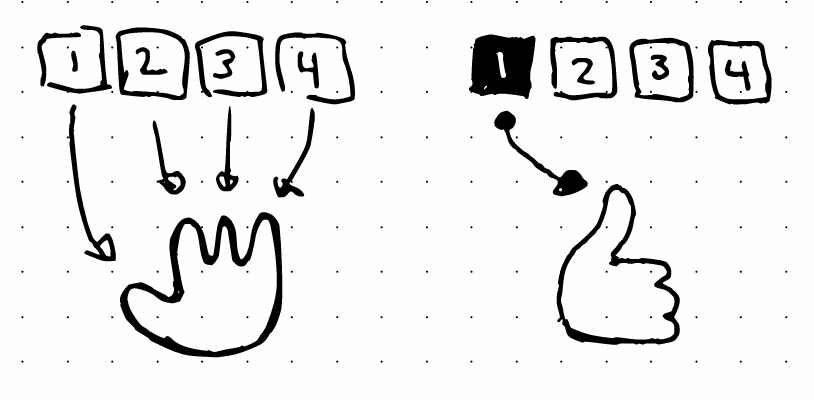 1 2 3 4 1 2 3 4